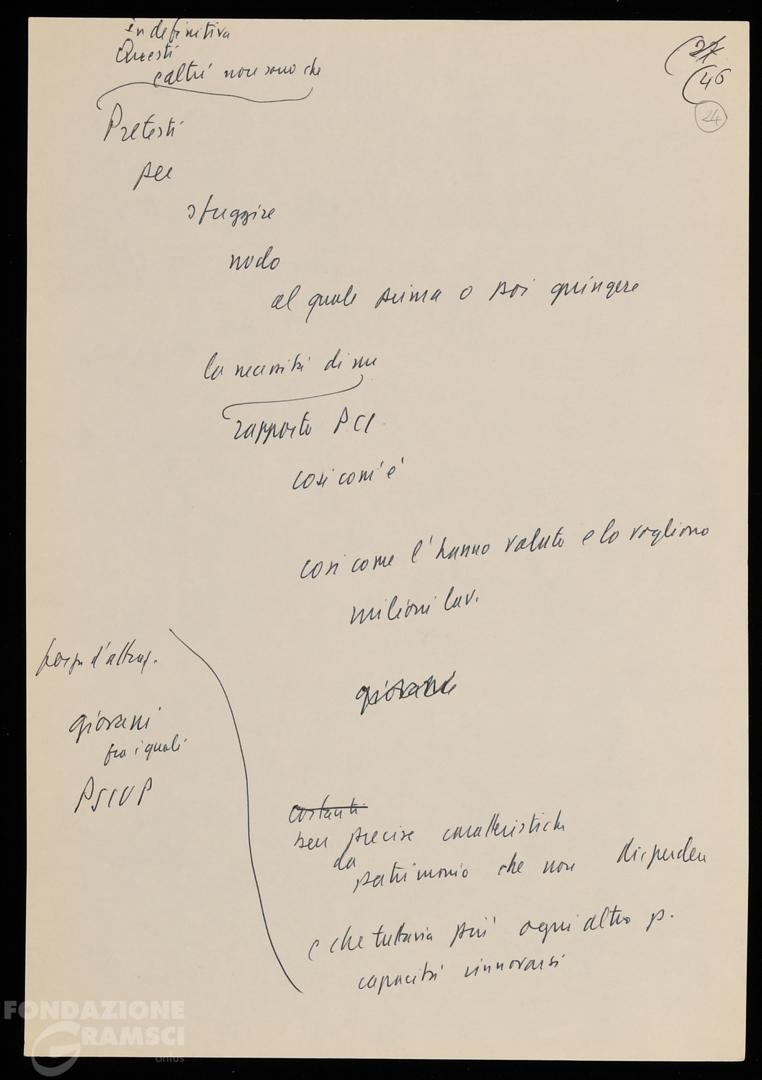 in definitiva
Questi
e altri non sono che
(27
(46
24
Pretesti
per
sfuggire
nodo
al quale prima o poi giungere
la necessità di un
rapporto PCI
così com'è
così come l'hanno voluto e lo vogliono
milioni lav.
giovani
forze d'altra p.
giovani
fra i quali
PSIUP
costanti
ben precise caratteristiche
da
patrimonio che non disperden
e che tuttavia più ogni altro p.
capacità rinnovarsi
FONDAZIONE
GRAMSCI
onlus